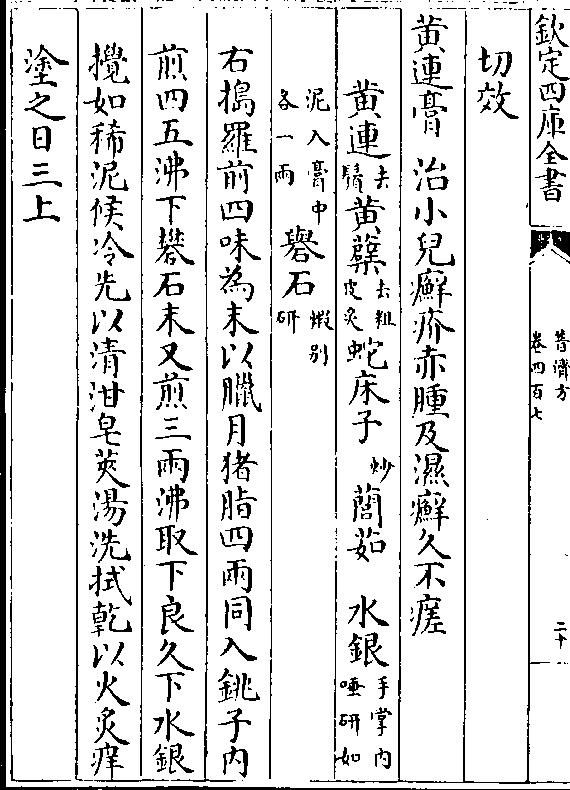 欽定四庫全書
普濟方
卷四百七
二十
切效
黃連膏　治小兒癬疥赤腫及濕癬久不瘥
黃連去鬚黃蘗去粗皮炙蛇床子炒䕡茹　水銀手掌內唾研如
泥入膏中各一兩礬石煅別研
右搗羅前四味為末以臘月猪脂四兩同入銚子內
煎四五沸下礬石末又煎三兩沸取下良久下水銀
攪如稀泥候冷先以清泔皂莢湯洗拭乾以火炙痒
塗之日三上